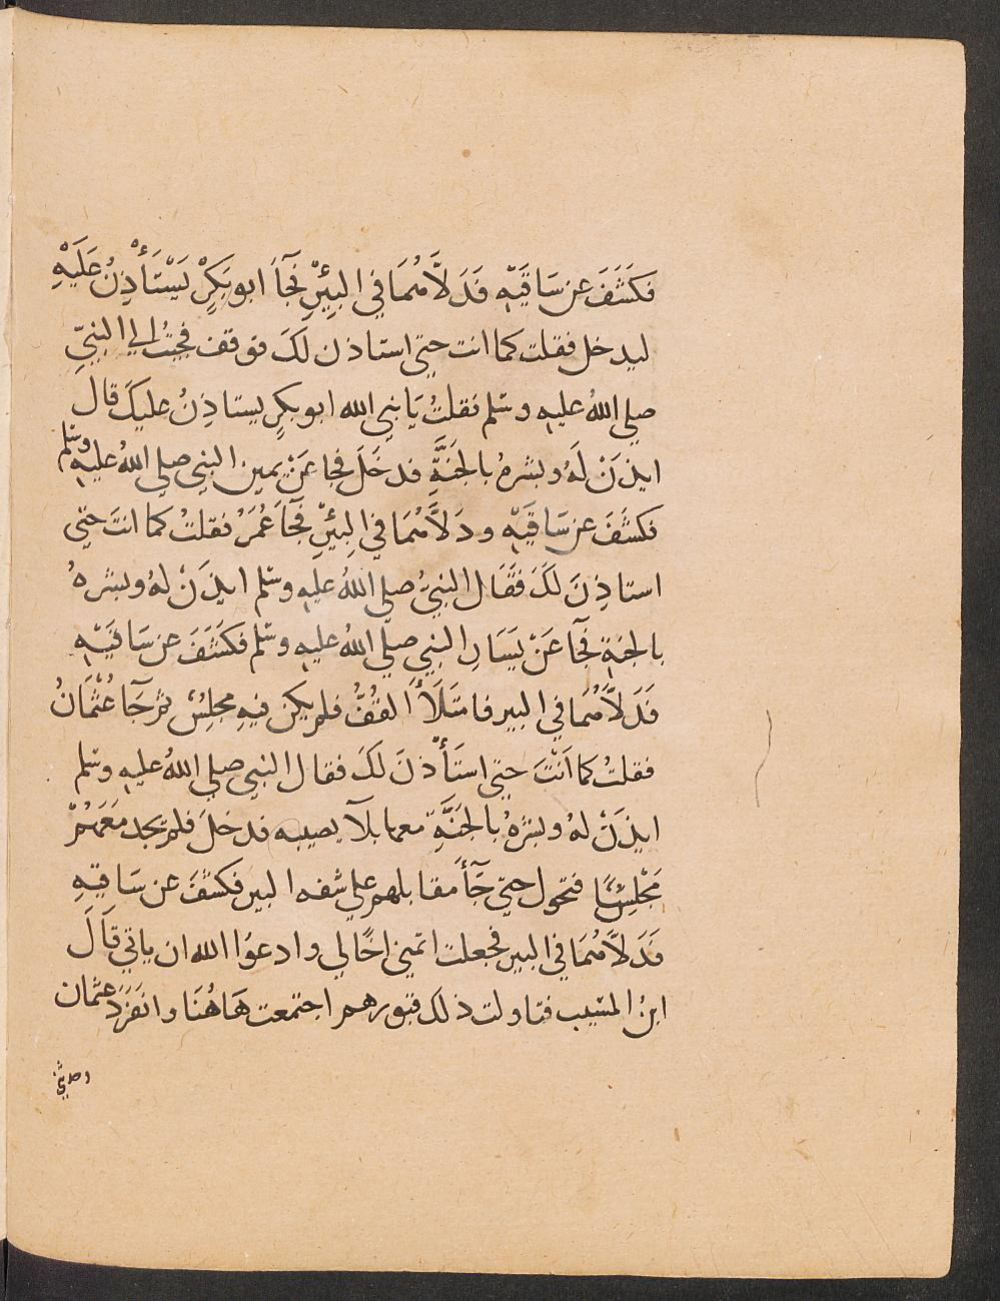 فكَشَفَ عن سَاقَيْهِ فَدَلَّاهُمَا في البِيْرِ فجَآَ ابو بَكرٍ يَسْتَأْذِنُ عَلَيْهِ
ليدخل فقلت كما انت حتي استاذن لكَ فوقف فجئتُ الي النبيِّ
صلي اللهُ عليهِ وسلم فقلتُ يَا نبي الله ابو بكرٍ يستاذِنُ عليكَ قال
ايذَنْ لَهُ وبشرهُ بالجَنَّةِ فدخَلَ فجا عَنْ يمين النبي صلي اللهُ عليهِ وسلم
فكشَفَ عن سَاقَيْهِ ودَلَّاهُمَا في البِيْرِ فجَآَ عُمَرُ فقلتُ كما انتَ حتي
استاذِنَ لَكَ فَقَال النبيُ صلي اللهُ عليهِ وسلم ايذَنْ لهُ وبشرهُ
بالجنةِ فجآ عَنْ يَسَارِ النبي صلي اللهُ عليهِ وسلم فكَشَفَ عن سَاقَيْهِ
فَدَلَّاهُمَا في البير فامتَلَأَ القُفُّ فلم يكن فيهِ مجلِسٌ ثم جَآَ عُثْمَانُ
فقلتُ كما اَنْتَ حتي استَأْذنَ لكَ فقال النبي صلي اللهُ عليهِ وسلم
ايذَنْ لهُ وبشرْهُ بالجَنَّةِ معها بلآ يصيبه فدخلَ فلم يجد مَعَهُمْ
مَجْلِسًا فتحول حتي جَآَ مقابلهم علي شفه البير فكشَفَ عن سَاقيهِ
فَدَلَّاهُمَا في البير فجعلت اتمني اخًا لي وادعوُا الله ان ياتي قَالَ
ابنُ المسَيب فتاولت ذلك قبورهم اجتمعت هَاهُنَا وانفَرَدَ عثمان
وحدثني